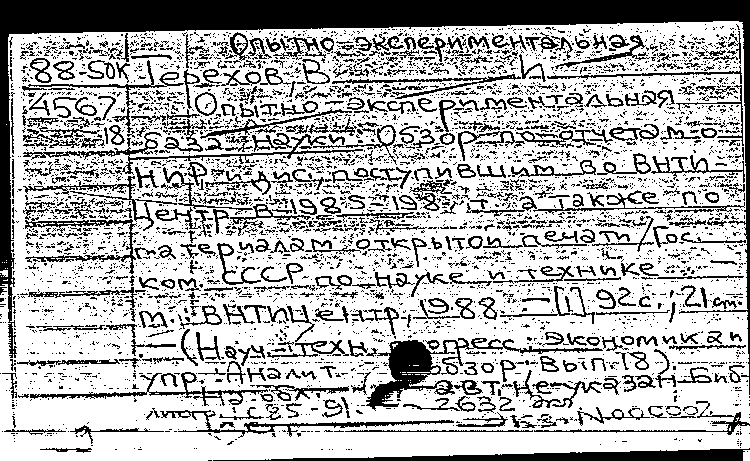 Опытно-экспериментальная
88-50К Терехов, В И
4567 Опытно-экспериментальная
18 база науки: Обзор по отчетам о
НИР и дис., поступившим во ВНТИ-
Центр в 1985-198 гг. а также по
материалам открытой печати / Гос.
ком. СССР по науке и технике...—
М.: ВНТИЦентр, 1988. — [1], 92 с.; 21 см.
— (Науч.-техн. прогресс: экономика и
упр.: Аналит. обзор; Вып. 18).
На обл. авт. не указан. Биб
лиогр.: с. 85-91. 2632 экз
Экз. N 00007